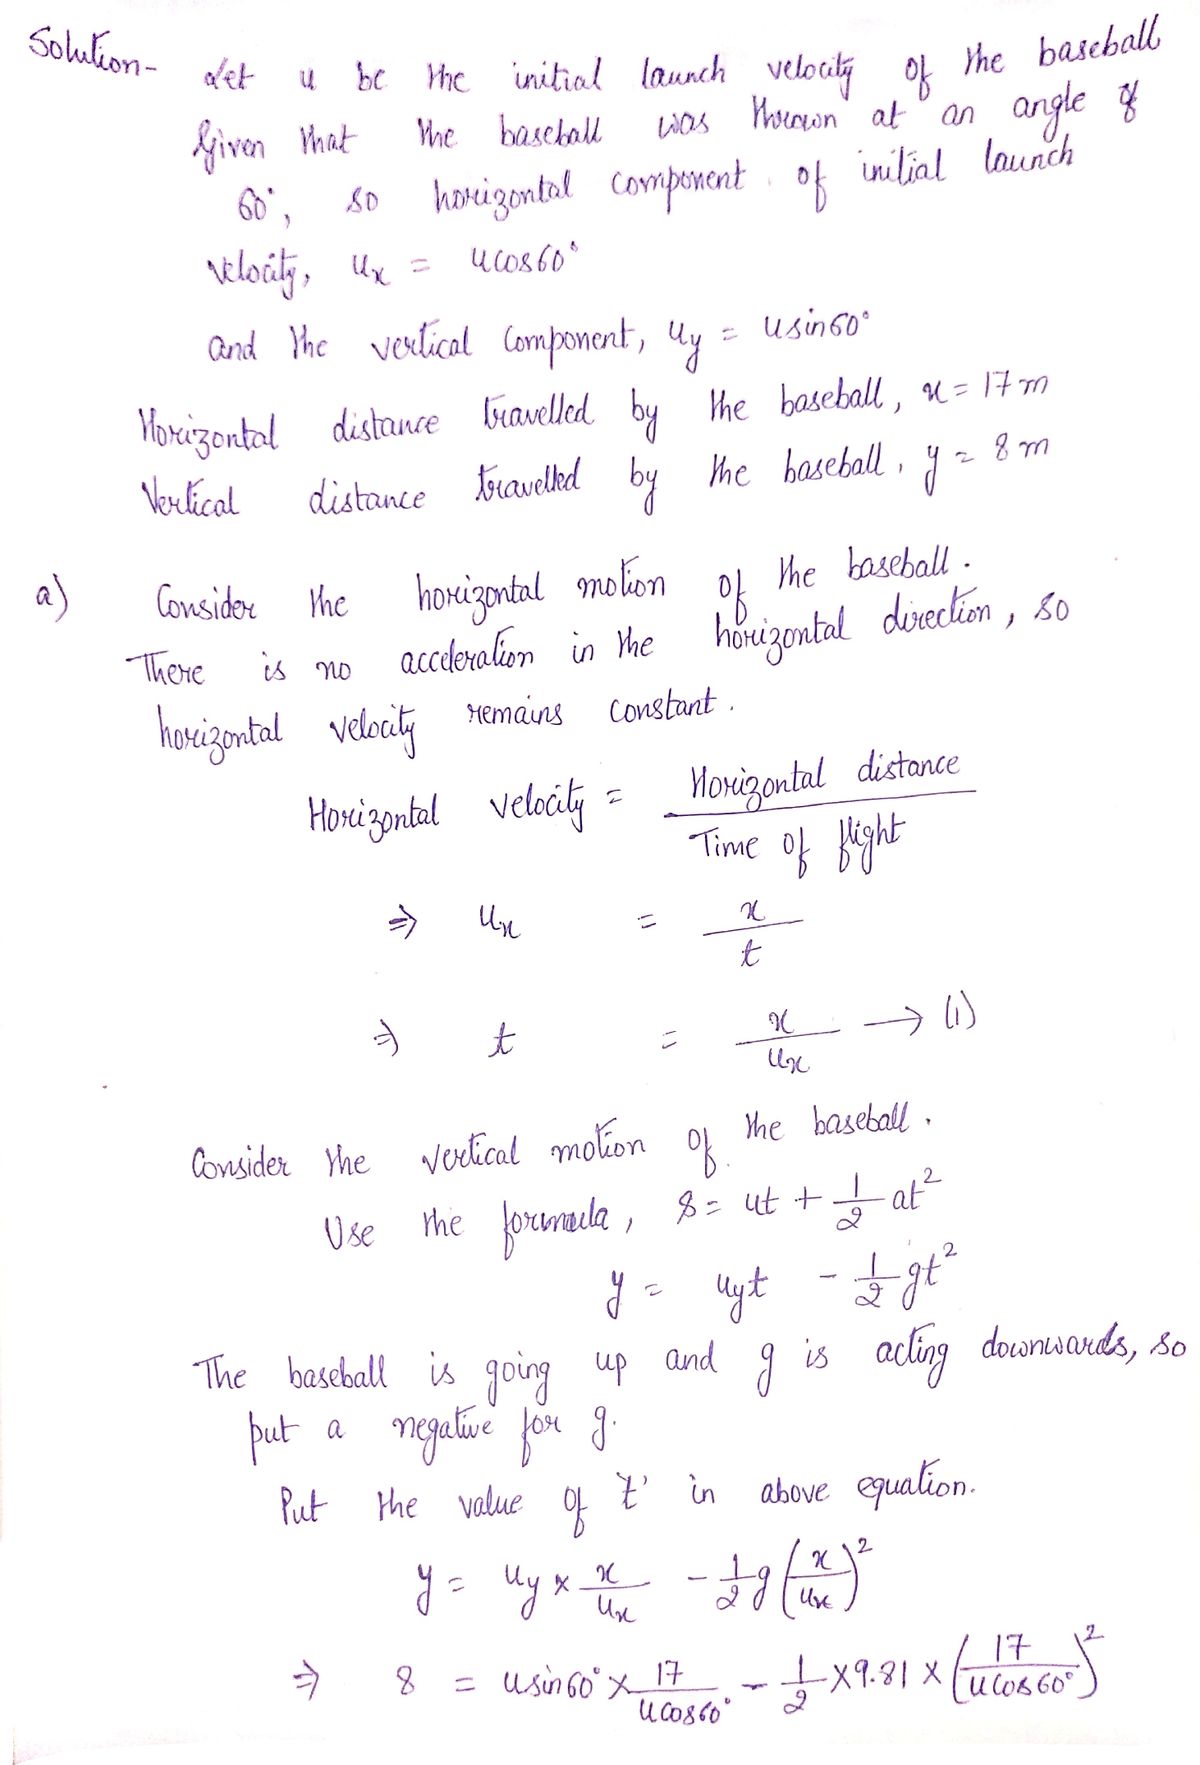 Solution- Let u be the initial launch velocity of the baseball
Given that the baseball was thrown at an angle of
60°, so horizontal component of initial launch
velocity, uₓ = u cos60°
and the vertical component, u_y = u sin60°
Horizontal distance travelled by the baseball, x = 17 m
Vertical distance travelled by the baseball, y = 8 m
a) Consider the horizontal motion of the baseball.
There is no acceleration in the horizontal direction, so
horizontal velocity remains constant.
Horizontal velocity = Horizontal distance / Time of flight
⇒ uₓ = x / t
⇒ t = x / uₓ → (1)
Consider the vertical motion of the baseball.
Use the formula, s = ut + 1/2 at²
y = u_y t - 1/2 gt²
The baseball is going up and g is acting downwards, so
put a negative for g.
Put the value of 't' in above equation.
y = u_y × x/uₓ - 1/2 g (x/uₓ)²
⇒ 8 = u sin60° × 17/(u cos60°) - 1/2 × 9.81 × (17/(u cos60°))²